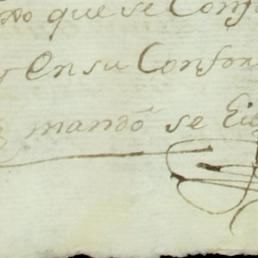 que se Conf
y en su Confor
mandó se